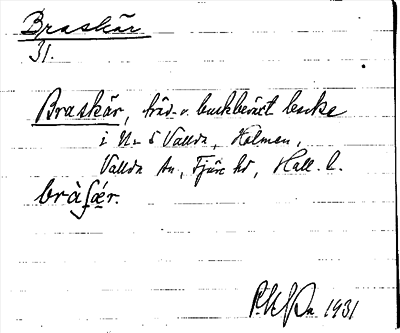 Braskär
31.
Braskär, träd- o. buskbeväxt backe
i N. ö Vallda, Holmen,
Vallda sn, Fjäre hd, Hall. l.
1931